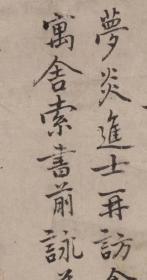 夢炎進士再訪
寓舍索書前詠